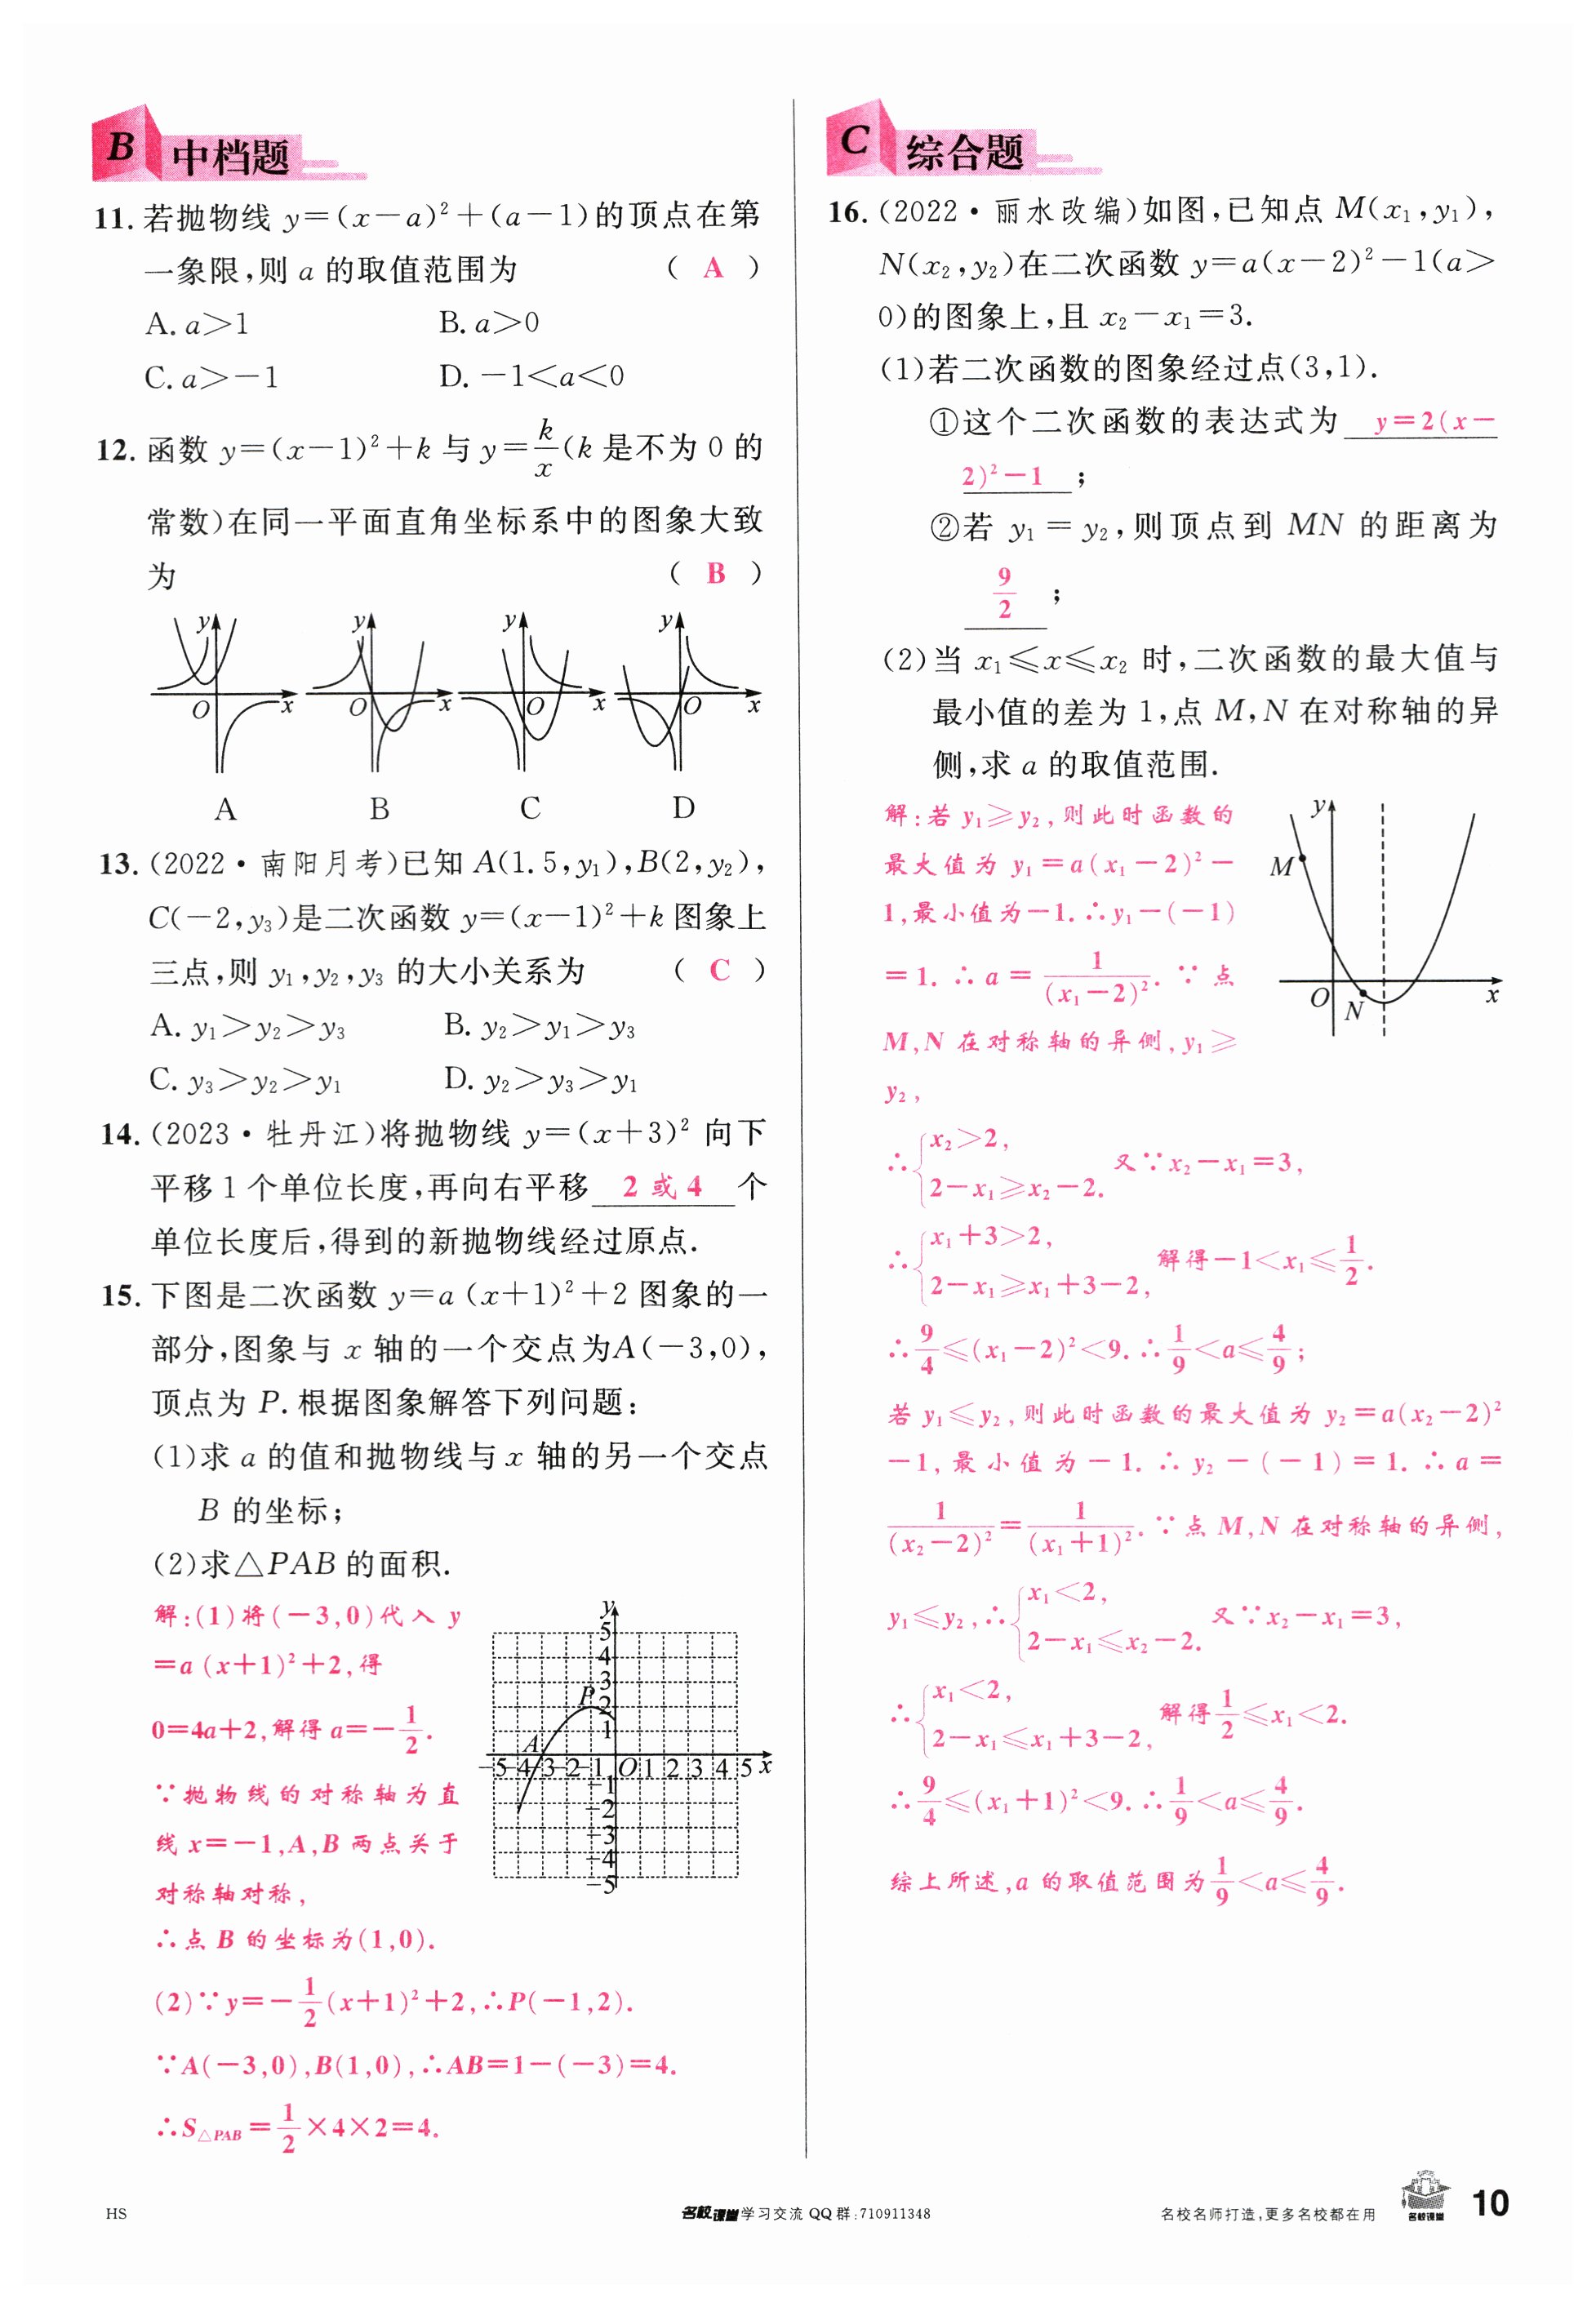 B 中档题
11. 若抛物线 y=(x-a)²+(a-1)的顶点在第
一象限,则 a 的取值范围为 ( A )
A. a>1 B. a>0
C. a>-1 D. -1<a<0
12. 函数 y=(x-1)²+k 与 y=k/x(k 是不为 0 的
常数)在同一平面直角坐标系中的图象大致
为 ( B )
y y y y
O x O x O x O x
A B C D
13. (2022·南阳月考)已知 A(1.5,y₁),B(2,y₂),
C(-2,y₃)是二次函数 y=(x-1)²+k 图象上
三点,则 y₁,y₂,y₃ 的大小关系为 ( C )
A. y₁>y₂>y₃ B. y₂>y₁>y₃
C. y₃>y₂>y₁ D. y₂>y₃>y₁
14. (2023·牡丹江)将抛物线 y=(x+3)² 向下
平移 1 个单位长度,再向右平移 2 或 4 个
单位长度后,得到的新抛物线经过原点.
15. 下图是二次函数 y=a (x+1)²+2 图象的一
部分,图象与 x 轴的一个交点为A(-3,0),
顶点为 P. 根据图象解答下列问题:
(1)求 a 的值和抛物线与 x 轴的另一个交点
B 的坐标;
(2)求△PAB 的面积.
解:(1)将(-3,0)代入 y
=a (x+1)²+2,得
0=4a+2,解得 a=-1/2.
∵抛物线的对称轴为直
线 x=-1,A,B 两点关于
对称轴对称,
∴点 B 的坐标为(1,0).
y
5
4
3
P
2
1
A
-5-4-3-2-1 O 1 2 3 4 5 x
-1
-2
-3
-4
-5
(2)∵y=-1/2(x+1)²+2,∴P(-1,2).
∵A(-3,0),B(1,0),∴AB=1-(-3)=4.
∴S△PAB=1/2×4×2=4.
C 综合题
16. (2022·丽水改编)如图,已知点 M(x₁,y₁),
N(x₂,y₂)在二次函数 y=a(x-2)²-1(a>
0)的图象上,且 x₂-x₁=3.
(1)若二次函数的图象经过点(3,1).
①这个二次函数的表达式为 y=2(x-
2)²-1 ;
②若 y₁=y₂,则顶点到 MN 的距离为
9/2 ;
(2)当 x₁≤x≤x₂ 时,二次函数的最大值与
最小值的差为 1,点 M,N 在对称轴的异
侧,求 a 的取值范围.
解:若 y₁≥y₂,则此时函数的
最大值为 y₁=a(x₁-2)²-
1,最小值为-1. ∴y₁-(-1)
=1. ∴a=1/(x₁-2)². ∵点
M,N 在对称轴的异侧,y₁≥
y₂,
y
M
O N x
∴{x₂>2,
2-x₁≥x₂-2. 又∵x₂-x₁=3,
∴{x₁+3>2,
2-x₁≥x₁+3-2, 解得-1<x₁≤1/2.
∴9/4≤(x₁-2)²<9. ∴1/9<a≤4/9;
若 y₁≤y₂,则此时函数的最大值为 y₂=a(x₂-2)²
-1,最小值为-1. ∴y₂-(-1)=1. ∴a=
1/(x₂-2)²=1/(x₁+1)². ∵点 M,N 在对称轴的异侧,
y₁≤y₂,∴{x₁<2,
2-x₁≤x₂-2. 又∵x₂-x₁=3,
∴{x₁<2,
2-x₁≤x₁+3-2, 解得1/2≤x₁<2.
∴9/4≤(x₁+1)²<9. ∴1/9<a≤4/9.
综上所述,a 的取值范围为1/9<a≤4/9.
HS
名校课堂学习交流 QQ 群:710911348
名校名师打造,更多名校都在用
名校课堂
10